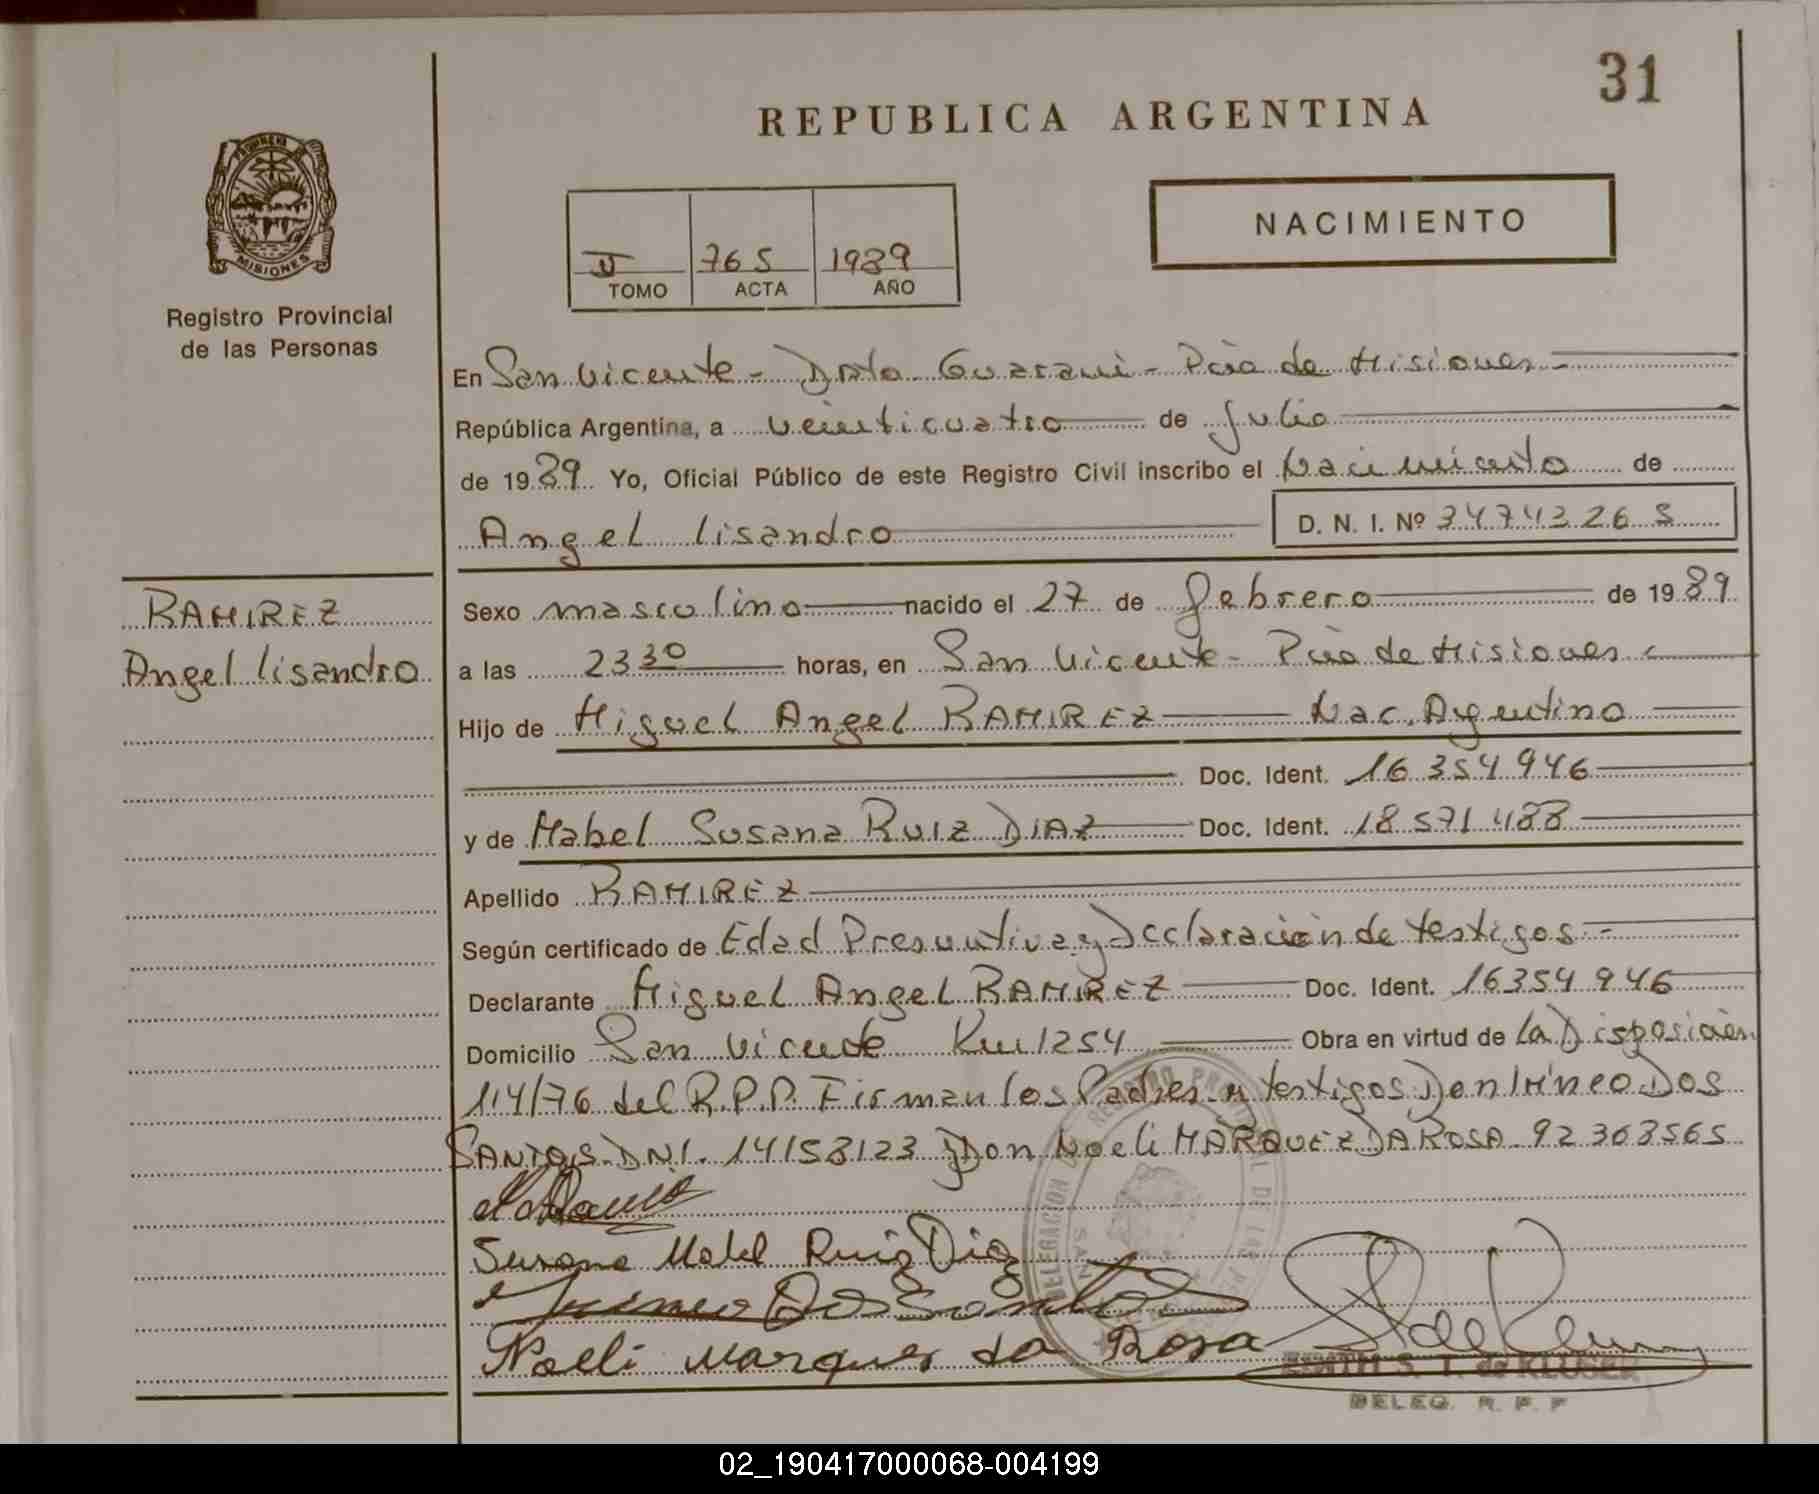 31
REPUBLICA ARGENTINA
PROVINCIA DE
MISIONES
Registro Provincial
de las Personas
NACIMIENTO
II 765 1989
TOMO ACTA AÑO
En San Vicente - Dpto Guarani - Pcia de Misiones -
República Argentina, a veinticuatro de Julio
de 1989 Yo, Oficial Público de este Registro Civil inscribo el Nacimiento de
Angel lisandro D. N. I. Nº 34743265
RAMIREZ
Angel lisandro
Sexo masculino nacido el 27 de febrero de 1989
a las 23 30 horas, en San Vicente - Pcia de Misiones -
Hijo de Miguel Angel RAMIREZ Nac. Argentino
Doc. Ident. 16 354 946
y de Mabel Susana RUIZ DIAZ Doc. Ident. 18 571 488
Apellido RAMIREZ
Según certificado de Edad Presuntiva y Declaración de testigos -
Declarante Miguel Angel RAMIREZ Doc. Ident. 16354 946
Domicilio San Vicente Km 1254 Obra en virtud de la Disposición
114/76 del R.P.P. Firman los Padres y testigos Don Irineo DOS
SANTOS DNI. 14158123 y Don Noeli MARQUEZ DA ROSA 92 368565
Susana Mabel Ruiz Diaz
Irineo Dos Santos
Noeli Marques da Rosa
DELEGACION DE REGISTRO PROVINCIAL DE LAS
SAN
EDITH S. T. de KLUGER
DELEG. R. P. P
02_190417000068-004199